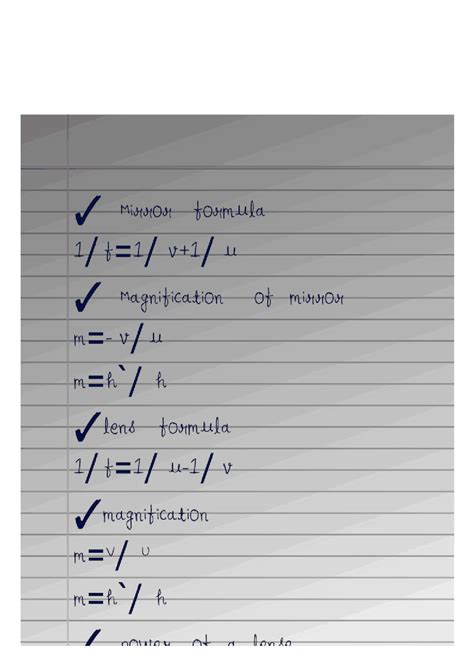 ✓ Mirror formula
1/ f=1/ v+1/ u
✓ Magnification of mirror
m=- v/ u
m=h`/ h
✓lens formula
1/ f=1/ u-1/ v
✓magnification
m=v/ u
m=h`/ h
✓ power of a lense